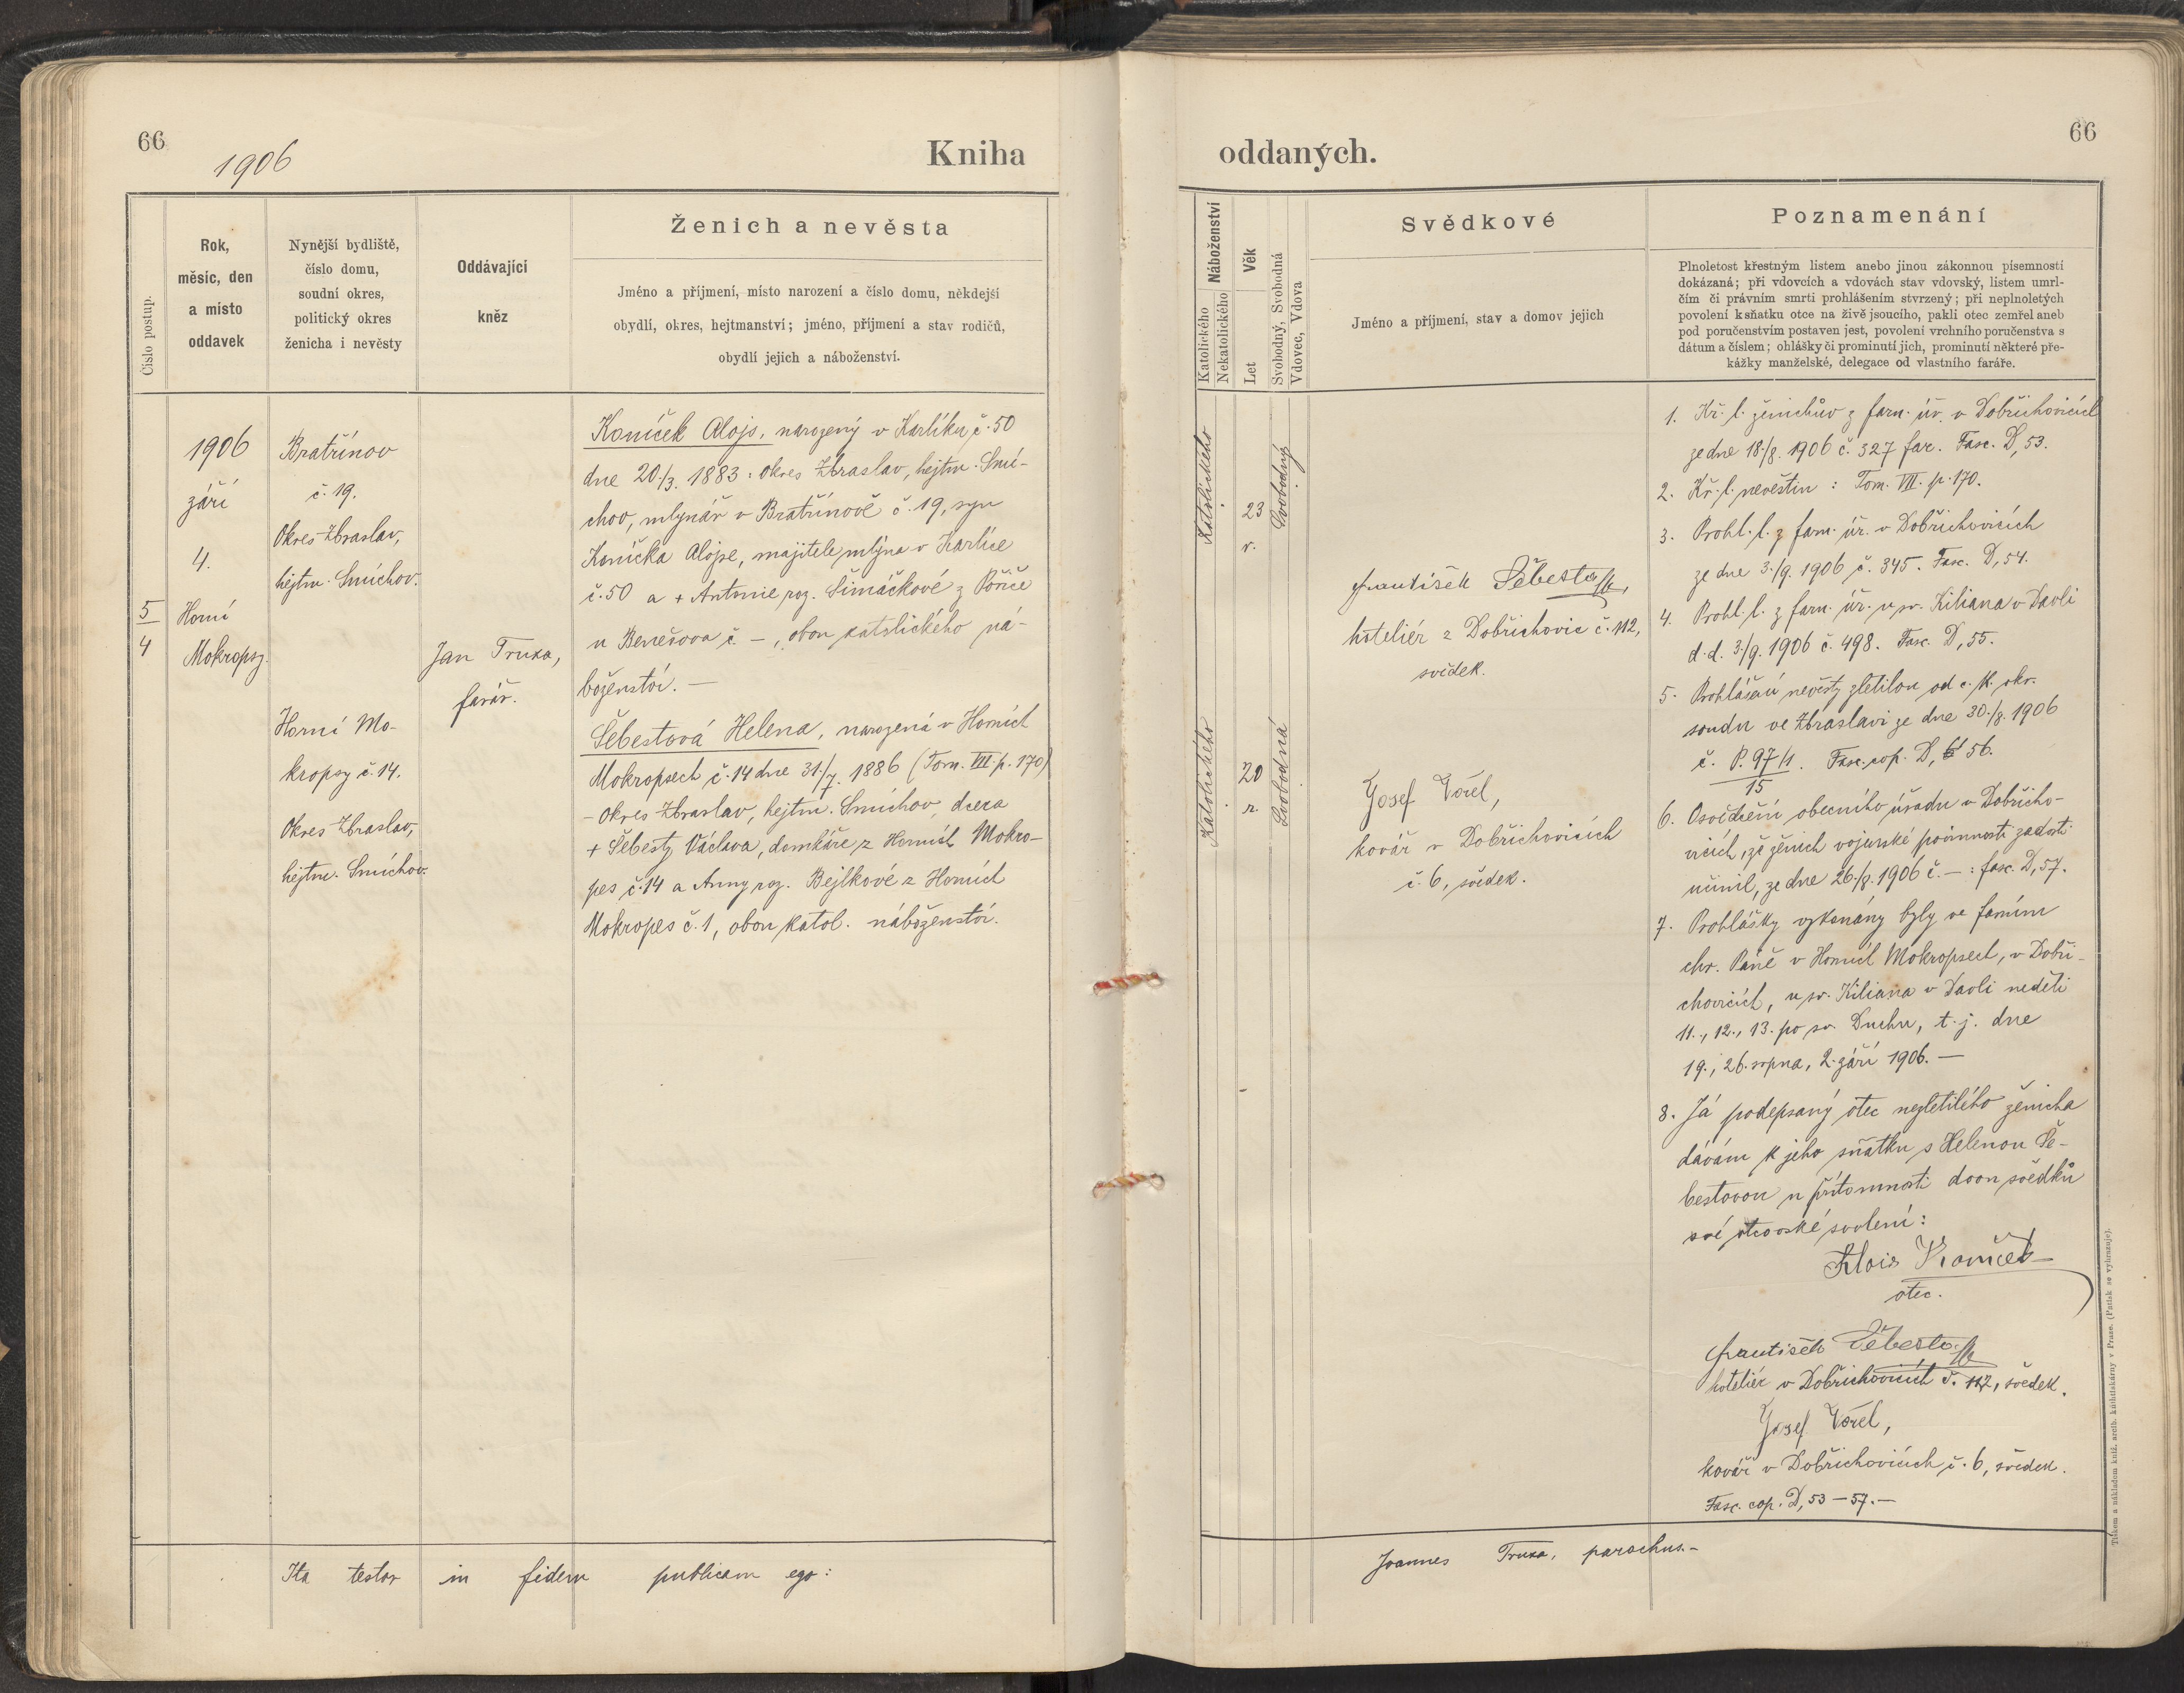 66
1906
Kniha
Číslo postup.
Rok,
měsíc, den
a místo
oddavek
Nynější bydliště,
číslo domu,
soudní okres,
politický okres
ženicha i nevěsty
Oddávající
kněz
Ženich a nevěsta
Jméno a příjmení, místo narození a číslo domu, někdejší
obydlí, okres, hejtmanství; jméno, příjmení a stav rodičů,
obydlí jejich a náboženství.
5
4
1906
září
4.
Horní
Mokropsy.
Bratřínov
č. 19.
Okres Zbraslav,
hejtm. Smíchov.
Horní Mo-
kropsy č. 14.
Okres Zbraslav,
hejtm. Smíchov.
Jan Truxa,
farář.
Koníček Alojs, narozený v Karlíku č. 50
dne 20./3. 1883: okres Zbraslav, hejtm. Smí-
chov, mlynář v Bratřínově č. 19, syn
Koníčka Alojse, majitele mlýna v Karlíce
č. 50 a + Antonie roz. Šimáčkové z Poříče
u Benešova č. –, obou katolického ná-
boženství. –
Šebestová Helena, narozená v Horních
Mokropsech č. 14 dne 31./7. 1886 (Tom. VII p. 170)
- okres Zbraslav, hejtm. Smíchov, dcera
+ Šebesty Václava, domkáře z Horních Mokro-
pes č. 14 a Anny roz. Bejlkové z Horních
Mokropes č. 1, obou katol. náboženství.
Ita testor in fidem publicam ego:
oddaných.
66
Náboženství
Katolického
Nekatolického
Věk
Let
Svobodný, Svobodná
Vdovec, Vdova
Svědkové
Jméno a příjmení, stav a domov jejich
Poznamenání
Plnoletost křestným listem anebo jinou zákonnou písemností
dokázaná; při vdovcích a vdovách stav vdovský, listem umrl-
čím či právním smrti prohlášením stvrzený; při neplnoletých
povolení k sňatku otce na živě jsoucího, pakli otec zemřel aneb
pod poručenstvím postaven jest, povolení vrchního poručenstva s
dátum a číslem; ohlášky či prominutí jich, prominutí některé pře-
kážky manželské, delegace od vlastního faráře.
Katolického
23
r.
Svobodný
Katolického
20
r.
Svobodná
František Šebesta
hoteliér z Dobřichovic č. 112,
svědek.
Josef Vorel,
kovář v Dobřichovicích
č. 6, svědek.
1. Kř. l. ženichův z farn. úř. v Dobřichovicích
ze dne 18./8. 1906 č. 327 far. Fasc. D, 53.
2. Kř. l. nevěstin: Tom. VII. p. 170.
3. Prohl. l. z farn. úř. v Dobřichovicích
ze dne 3./9. 1906 č. 345. Fasc. D, 54.
4. Prohl. l. z farn. úř. u sv. Kiliana v Davli
d. d. 3./9. 1906 č. 498. Fasc. D, 55.
5. Prohlášení nevěsty zletilou od c. k. okr.
soudu ve Zbraslavi ze dne 30./8. 1906
č. P. 97/1. Fasc. cop. D, 56.
15
6. Osvědčení obecního úřadu v Dobřicho-
vicích, že ženich vojenské povinnosti zadost
učinil, ze dne 26./8. 1906 č. –: fasc. D, 57.
7. Prohlášky vykonány byly ve farním
chr. Páně v Horních Mokropsech, v Dobři-
chovicích, u sv. Kiliana v Davli neděli
11., 12., 13. po sv. Duchu, t. j. dne
19., 26. srpna, 2. září 1906. –
8. Já podepsaný otec nezletilého ženicha
dávám k jeho sňatku s Helenou Še-
bestovou u přítomnosti dvou svědků
své otcovské svolení:
Alois Koníček
otec.
František Šebesta
hoteliér v Dobřichovicích č. 112, svědek.
Josef Vorel,
kovář v Dobřichovicích č. 6, svědek.
Fasc. cop. D, 53–57. –
Joannes Truxa, parochus. –
Tiskem a nákladem kníž. arcib. knihtiskárny v Praze. (Patisk se vyhrazuje).